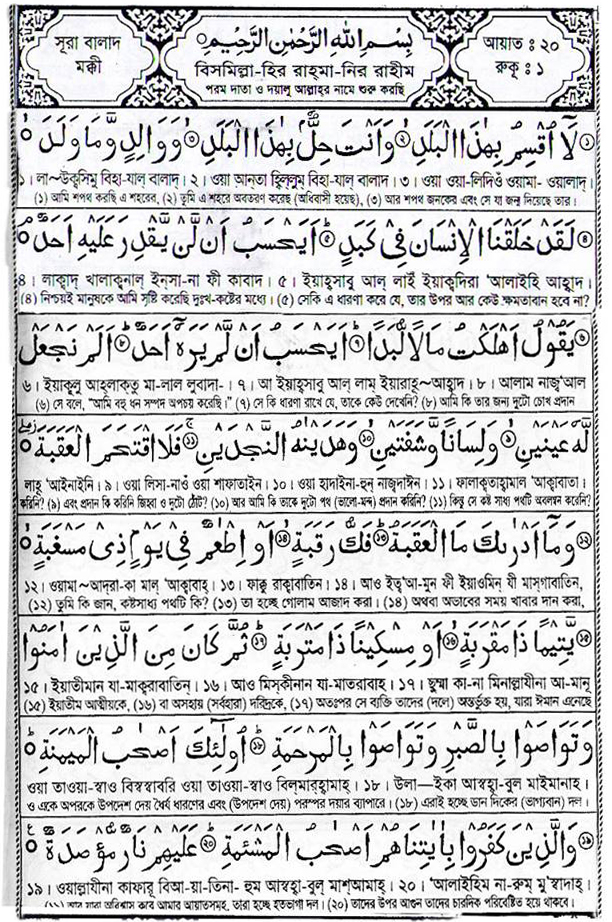 সূরা বালাদ
মক্কী
بِسْمِ اللهِ الرَّحْمٰنِ الرَّحِيْمِ
বিসমিল্লা-হির রাহ্‌মা-নির রাহীম
পরম দাতা ও দয়ালু আল্লাহ্‌র নামে শুরু করছি
আয়াত : ২০
রুকূ : ১
لَآ اُقْسِمُ بِهٰذَا الْبَلَدِ ۝ وَاَنْتَ حِلٌّۢ بِهٰذَا الْبَلَدِ ۝ وَوَالِدٍ وَّمَا وَلَدَ ۝
১। লা~উক্‌সিমু বিহা-যাল্‌ বালাদ্‌। ২। ওয়া আন্‌তা হিল্লুম্‌ বিহা-যাল্‌ বালাদ। ৩। ওয়া ওয়া-লিদিওঁ ওয়ামা- ওয়ালাদ্‌।
(১) আমি শপথ করছি এ শহরের, (২) তুমি এ শহরে অবতরণ করেছ (অধিবাসী হয়েছ), (৩) আর শপথ জনকের এবং সে যা জন্ম দিয়েছে তার।
لَقَدْ خَلَقْنَا الْاِنْسَانَ فِيْ كَبَدٍ ۝ اَيَحْسَبُ اَنْ لَّنْ يَّقْدِرَ عَلَيْهِ اَحَدٌ ۝
৪। লাক্বাদ্‌ খালাক্‌নাল্‌ ইন্‌সা-না ফী কাবাদ। ৫। ইয়াহ্‌সাবু আল্‌ লাইঁ ইয়াক্‌দিরা 'আলাইহি আহাদ।
(৪) নিশ্চয়ই মানুষকে আমি সৃষ্টি করেছি দুঃখ-কষ্টের মধ্যে। (৫) সেকি এ ধারণা করে যে, তার উপর আর কেউ ক্ষমতাবান হবে না?
يَقُوْلُ اَهْلَكْتُ مَالًا لُّبَدًا ۝ اَيَحْسَبُ اَنْ لَّمْ يَرَهٗٓ اَحَدٌ ۝ اَلَمْ نَجْعَلْ
৬। ইয়াকূলু আহ্‌লাক্‌তু মা-লাল লুবাদা-। ৭। আ ইয়াহ্‌সাবু আল্‌ লাম্‌ ইয়ারাহূ~আহাদ। ৮। আলাম নাজ্‌'আল
(৬) সে বলে, "আমি বহু ধন সম্পদ অপচয় করেছি।" (৭) সে কি ধারণা রাখে যে, তাকে কেউ দেখেনি? (৮) আমি কি তার জন্য দুটো চোখ প্রদান
لَّهٗ عَيْنَيْنِ ۝ وَلِسَانًا وَّشَفَتَيْنِ ۝ وَهَدَيْنٰهُ النَّجْدَيْنِ ۝ فَلَا اقْتَحَمَ الْعَقَبَةَ ۝
লাহূ 'আইনাইনি। ৯। ওয়া লিসা-নাওঁ ওয়া শাফাতাইন। ১০। ওয়া হাদাইনা-হুন্‌ নাজ্‌দাঈন। ১১। ফালাক্‌তাহামাল 'আক্বাবাতা।
করিনি? (৯) এবং প্রদান কি করিনি জিহ্বা ও দুটো ঠোঁট? (১০) আর আমি কি তাকে দুটো পথ (ভালো-মন্দ) প্রদান করিনি? (১১) কিন্তু সে কষ্ট সাধ্য পথটি অবলম্বন করেনি?
وَمَآ اَدْرٰىكَ مَا الْعَقَبَةُ ۝ فَكُّ رَقَبَةٍ ۝ اَوْ اِطْعٰمٌ فِيْ يَوْمٍ ذِيْ مَسْغَبَةٍ ۝
১২। ওয়ামা~আদ্‌রা-কা মাল্‌ 'আক্বাবাহ্‌। ১৩। ফাক্কু রাক্বাবাতিন। ১৪। আও ইত্ব'আ-মুন ফী ইয়াওমিন যী মাস্‌গাবাতিন,
(১২) তুমি কি জান, কষ্টসাধ্য পথটি কি? (১৩) তা হচ্ছে গোলাম আজাদ করা। (১৪) অথবা অভাবের সময় খাবার দান করা,
يَّتِيْمًا ذَا مَقْرَبَةٍ ۝ اَوْ مِسْكِيْنًا ذَا مَتْرَبَةٍ ۝ ثُمَّ كَانَ مِنَ الَّذِيْنَ اٰمَنُوْا
১৫। ইয়াতীমান যা-মাক্‌রাবাতিন্‌। ১৬। আও মিস্‌কীনান যা-মাতরাবাহ। ১৭। ছুম্মা কা-না মিনাল্লাযীনা আ-মানূ
(১৫) ইয়াতীম আত্মীয়কে, (১৬) বা অসহায় (সর্বহারা) দরিদ্রকে, (১৭) অতঃপর সে ব্যক্তি তাদের (দলে) অন্তর্ভুক্ত হয়, যারা ঈমান এনেছে
وَتَوَاصَوْا بِالصَّبْرِ وَتَوَاصَوْا بِالْمَرْحَمَةِ ۝ اُولٰٓئِكَ اَصْحٰبُ الْمَيْمَنَةِ ۝
ওয়া তাওয়া-স্বাও বিস্বস্বাবরি ওয়া তাওয়া-স্বাও বিল্‌মার্‌হামাহ্‌। ১৮। উলা—ইকা আস্বহা-বুল মাইমানাহ।
ও একে অপরকে উপদেশ দেয় ধৈর্য ধারণের এবং (উপদেশ দেয়) পরস্পর দয়ার ব্যাপারে। (১৮) এরাই হচ্ছে ডান দিকের (ভাগ্যবান) দল।
وَالَّذِيْنَ كَفَرُوْا بِاٰيٰتِنَا هُمْ اَصْحٰبُ الْمَشْئَمَةِ ۝ عَلَيْهِمْ نَارٌ مُّؤْصَدَةٌ ۝
১৯। ওয়াল্লাযীনা কাফারূ বিআ-য়া-তিনা- হুম আস্বহা-বুল্‌ মাশ্‌আমাহ্‌। ২০। 'আলাইহিম না-রুম্‌ মু'স্বাদাহ্‌।
(১৯) আর যারা অবিশ্বাস করে আমার আয়াতসমূহ, তারা হচ্ছে হতভাগা দল। (২০) তাদের উপর আগুন তাদের চারদিক পরিবেষ্টিত হয়ে থাকবে।